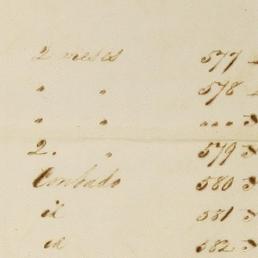 2 meses 577
" " 578
" " "
2. " 579
Combado 580
id 581
id 582